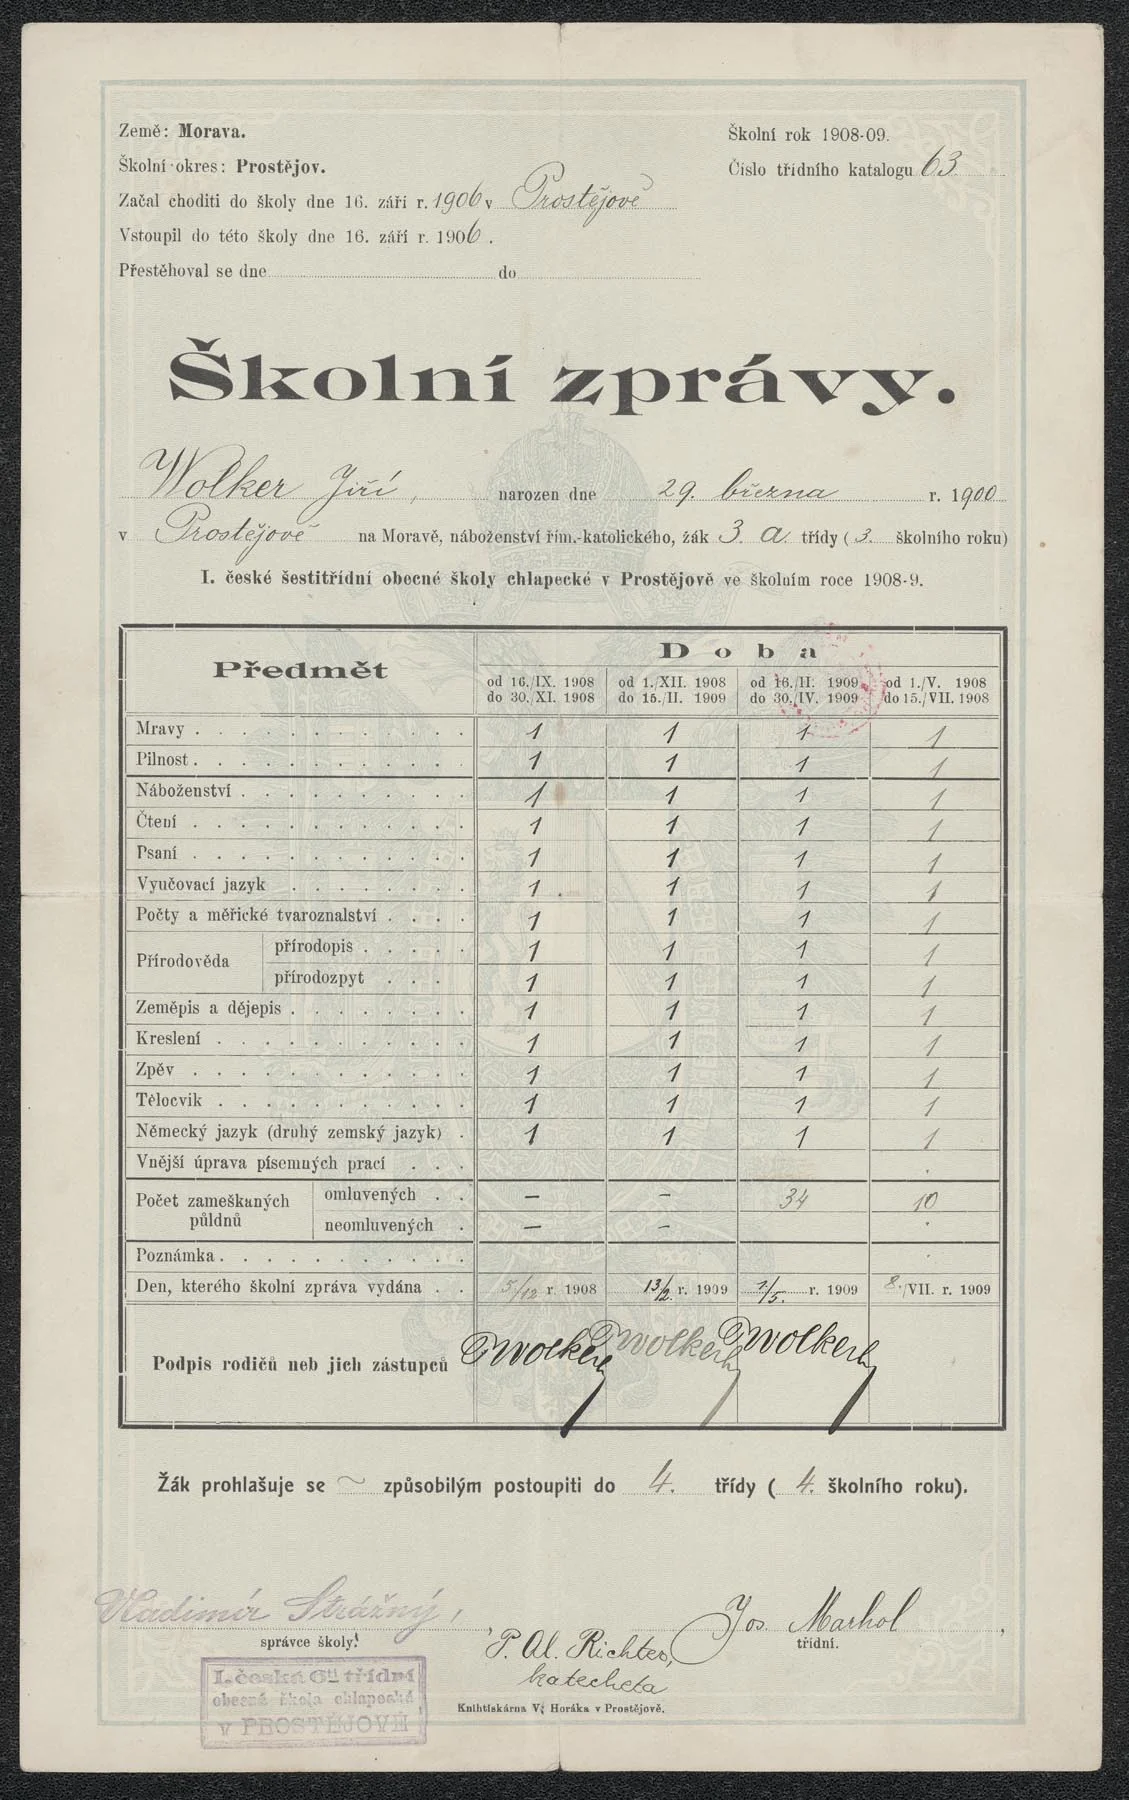 Země: Morava.
Školní rok 1908-09.
Školní okres: Prostějov.
Číslo třídního katalogu 63
Začal choditi do školy dne 16. září r. 1906 v Prostějově
Vstoupil do této školy dne 16. září r. 1906.
Přestěhoval se dne do
Školní zprávy.
Wolker Jiří, narozen dne 29. března r. 1900
v Prostějově na Moravě, náboženství řím.-katolického, žák 3. a. třídy (3. školního roku)
I. české šestitřídní obecné školy chlapecké v Prostějově ve školním roce 1908-9.
Předmět Doba
od 16./IX. 1908 do 30./XI. 1908
od 1./XII. 1908 do 15./II. 1909
od 16./II. 1909 do 30./IV. 1909
od 1./V. 1908 do 15./VII. 1908
Mravy 1 1 1 1
Pilnost 1 1 1 1
Náboženství 1 1 1 1
Čtení 1 1 1 1
Psaní 1 1 1 1
Vyučovací jazyk 1 1 1 1
Počty a měřické tvaroznalství 1 1 1 1
Přírodověda
přírodopis 1 1 1 1
přírodozpyt 1 1 1 1
Zeměpis a dějepis 1 1 1 1
Kreslení 1 1 1 1
Zpěv 1 1 1 1
Tělocvik 1 1 1 1
Německý jazyk (druhý zemský jazyk) 1 1 1 1
Vnější úprava písemných prací
Počet zameškaných půldnů
omluvených — — 34 10
neomluvených — —
Poznámka
Den, kterého školní zpráva vydána 5/12 r. 1908 13/2. r. 1909 1/5. r. 1909 8./VII. r. 1909
Podpis rodičů neb jich zástupců
Žák prohlašuje se ~ způsobilým postoupiti do 4. třídy (4. školního roku).
Vladimír Strážný,
správce školy.
Jos. Marhol,
třídní.
P. Al. Richter,
katecheta
I. česká 6ti třídní
obecná škola chlapecká
v PROSTĚJOVĚ
Knihtiskárna V. Horáka v Prostějově.